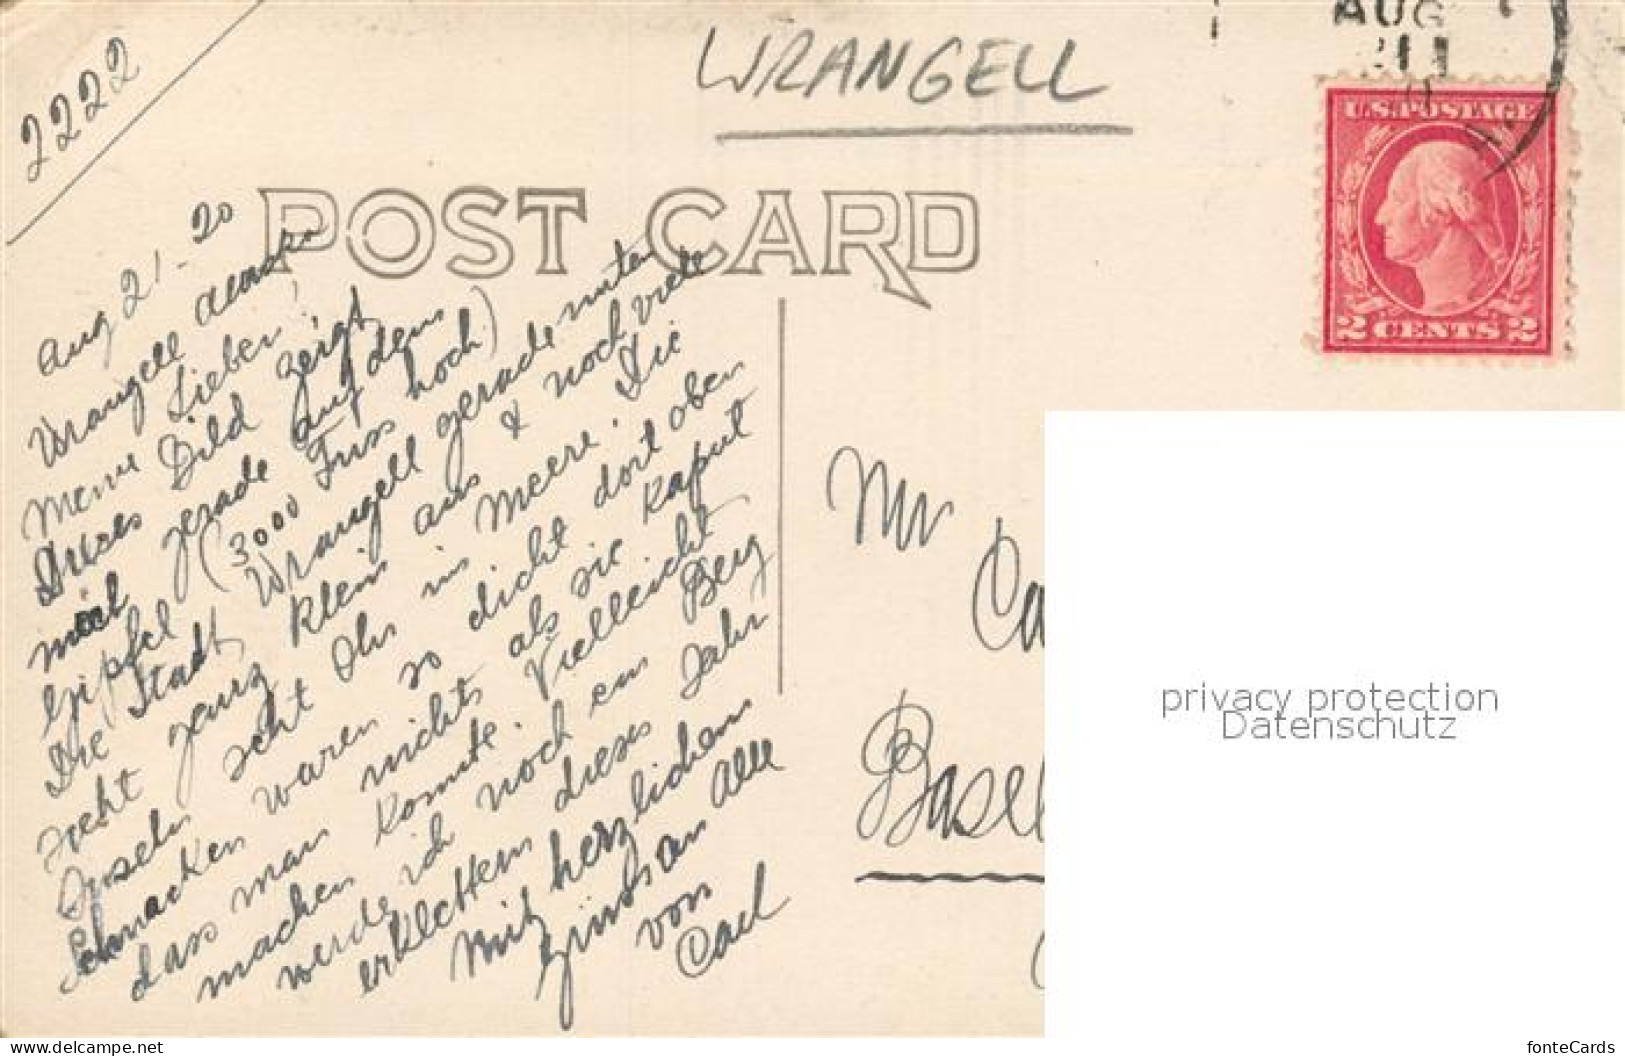 2222
WRANGELL
AUG
U.S.POSTAGE
2 CENTS 2
POST CARD
Aug 21 - 20
Wrangell Alaska
Meine Lieben!
Dieses Bild zeigt
mich gerade auf dem
Gipfel (3000 Fuss hoch)
Die Stadt Wrangell gerade unten
seht ganz klein aus & noch viele
Inseln seht Ihr im Meere. Die
Schnacken waren so dicht dort oben
dass man nichts als sie kaput
machen komte. Vielleicht
werde ich noch ein Berg
erklettern dieses Jahr
Mit herzlichen
Gruss an Alle
von
Carl
Mr
Ca
Basel
privacy protection
Datenschutz
www.delcampe.net
fonteCards